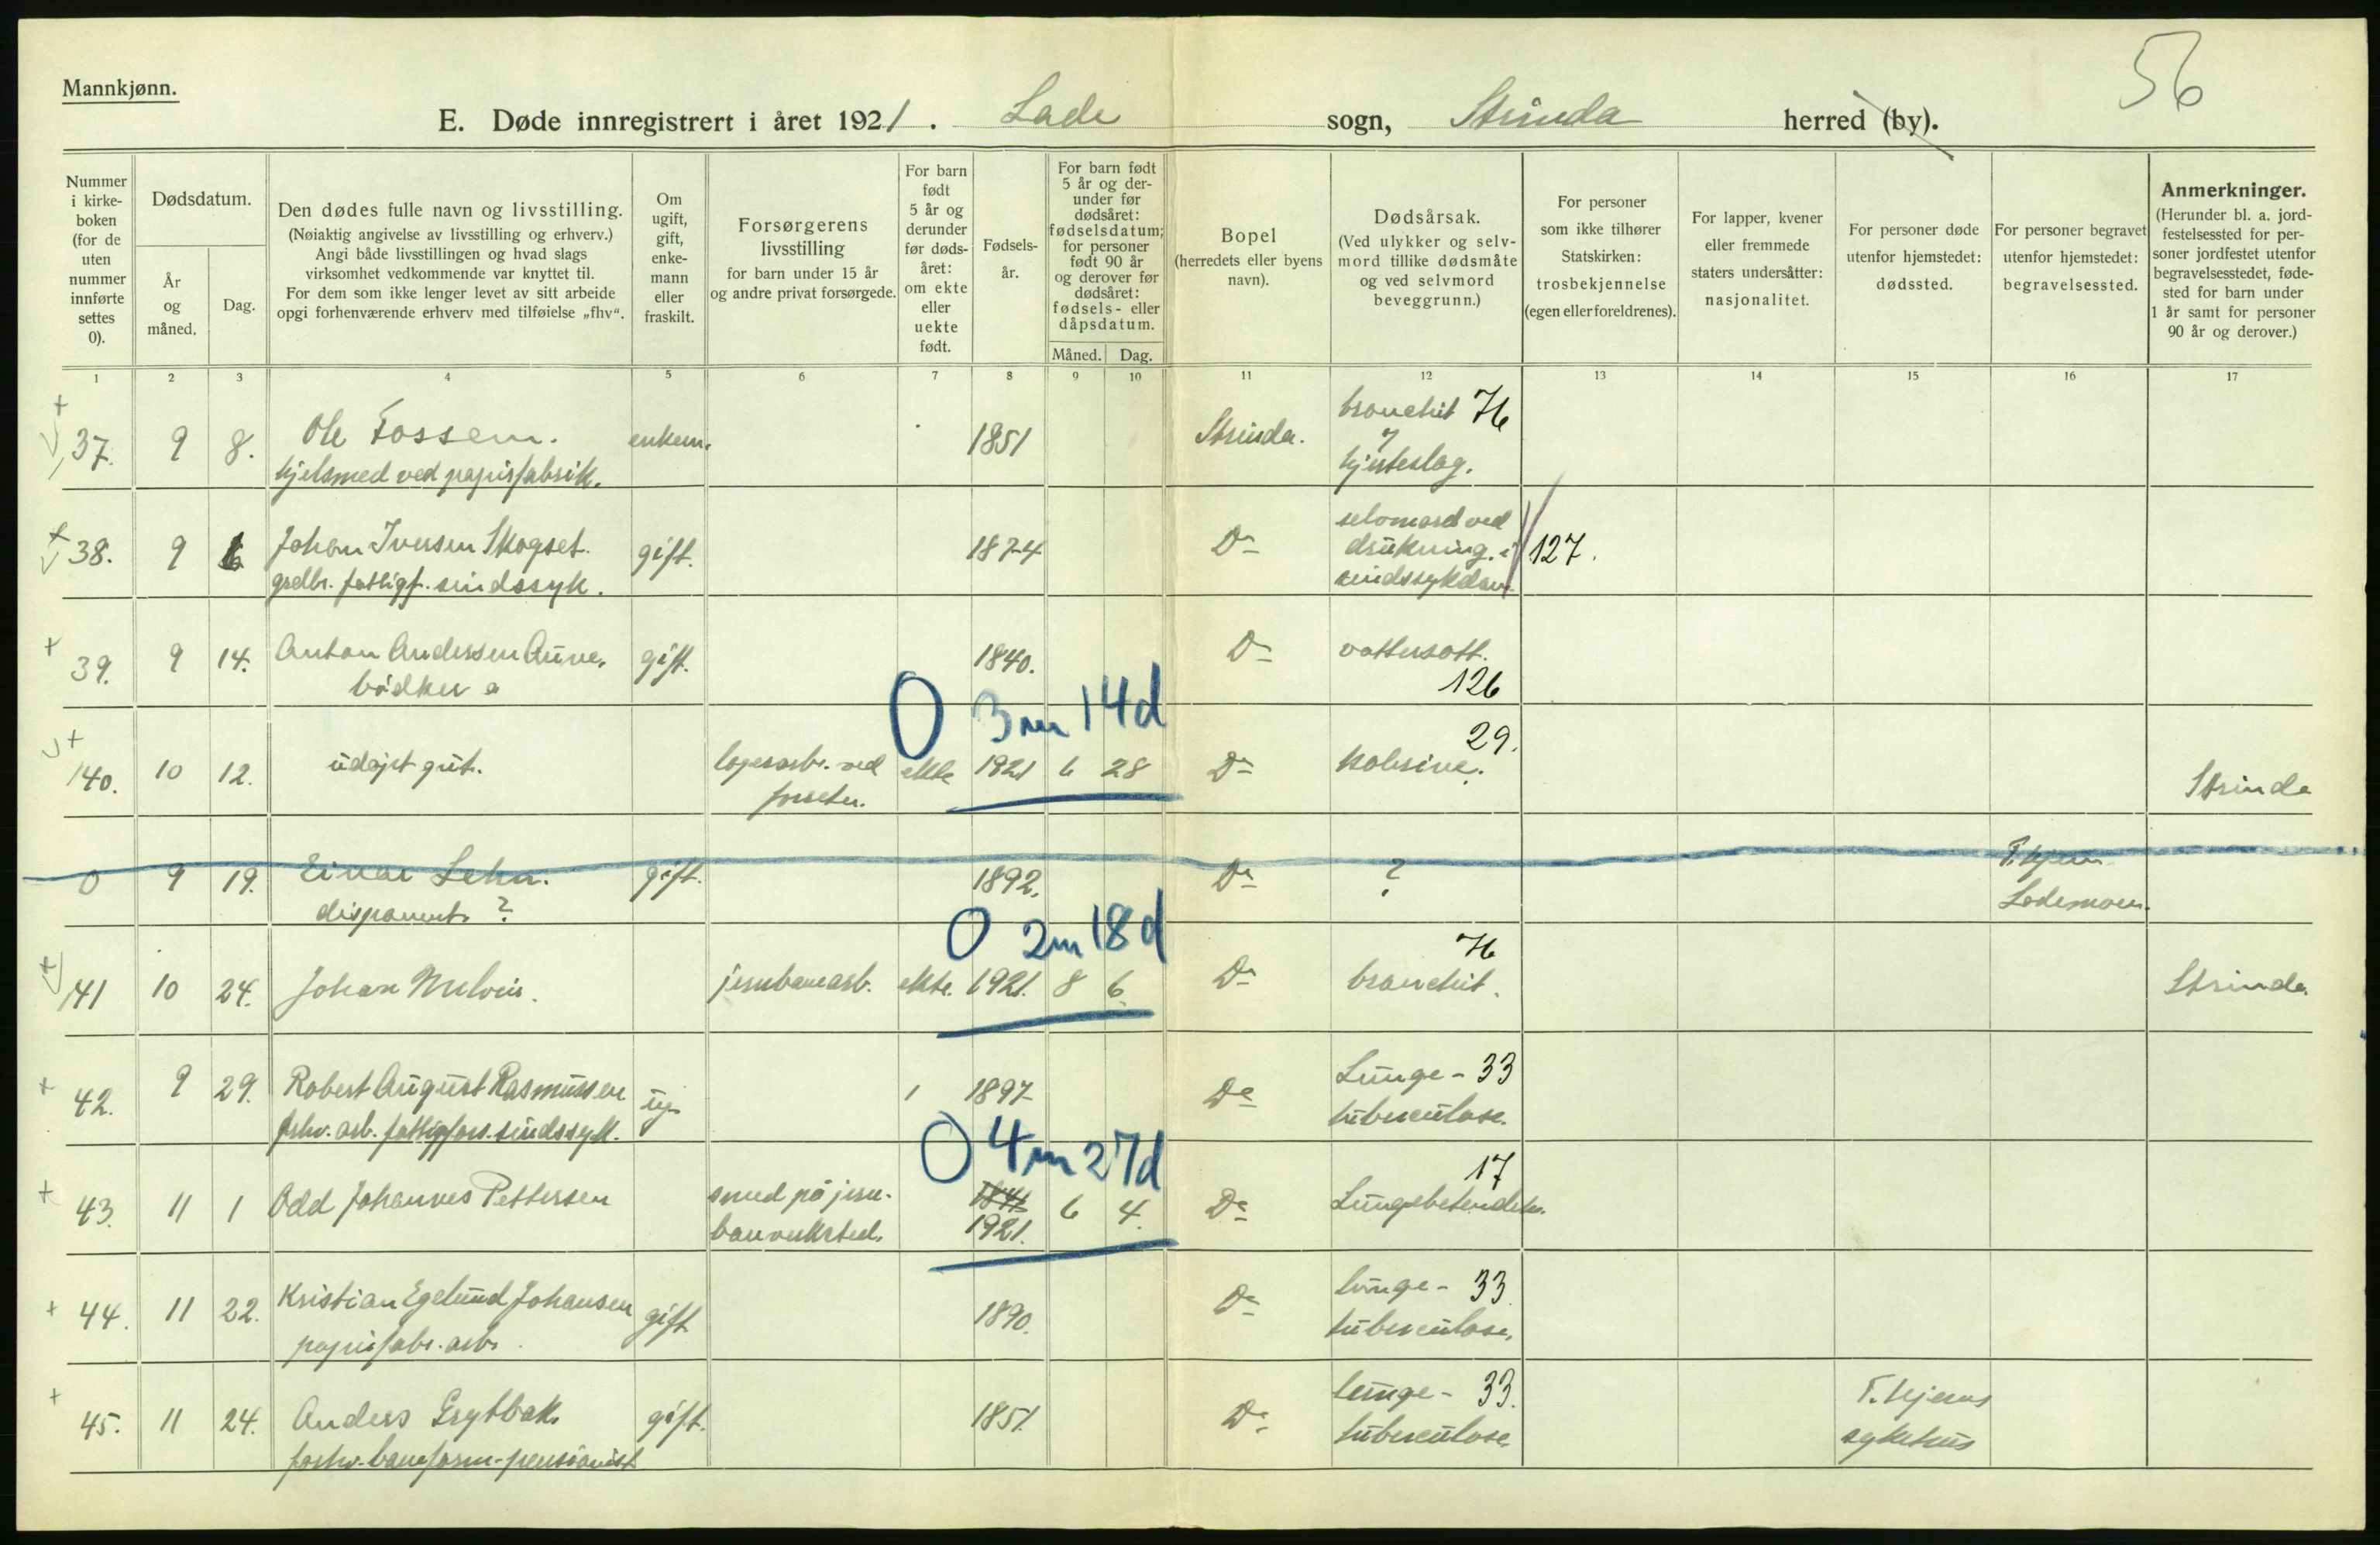 56
Mannkjønn.
E. Døde innregistrert i året 1921. Lade sogn, Strinda herred (by).
Nummer i kirke-boken (for de uten nummer innførte settes 0).
Dødsdatum.
År og måned.
Dag.
Den dødes fulle navn og livsstilling.
(Nøiaktig angivelse av livsstilling og erhverv.)
Angi både livsstillingen og hvad slags
virksomhet vedkommende var knyttet til.
For dem som ikke lenger levet av sitt arbeide
opgi forhenværende erhverv med tilføielse „fhv“.
Om ugift, gift, enke-mann eller fraskilt.
Forsørgerens livsstilling
for barn under 15 år
og andre privat forsørgede.
For barn født 5 år og derunder før døds-året: om ekte eller uekte født.
Fødsels-år.
For barn født 5 år og der-under før dødsåret: fødselsdatum; for personer født 90 år og derover før dødsåret: fødsels- eller dåpsdatum.
Måned. Dag.
Bopel
(herredets eller byens navn).
Dødsårsak.
(Ved ulykker og selv-mord tillike dødsmåte og ved selvmord beveggrunn.)
For personer som ikke tilhører Statskirken: trosbekjennelse (egen eller foreldrenes).
For lapper, kvener eller fremmede staters undersåtter: nasjonalitet.
For personer døde utenfor hjemstedet: dødssted.
For personer begravet utenfor hjemstedet: begravelsessted.
Anmerkninger.
(Herunder bl. a. jord-festelsessted for per-soner jordfestet utenfor begravelsesstedet, føde-sted for barn under 1 år samt for personer 90 år og derover.)
1 2 3 4 5 6 7 8 9 10 11 12 13 14 15 16 17
37. 9 8. Ole Fossem. enkem. 1851 Strinda. bronchit 76
kjelsmed ved papirfabrik. hjerteslag.
38. 9 6 Johan Iversen Skogset. gift. 1874 Do selvmord ved
grdbr. fattigf. sindssyk. drukning. i 127.
sindssykdom
39. 9 14. Anton Anderssen Aune. gift. 1840. Do vattersott.
bødker 126
0 3m 14d
140. 10 12. udøpt gut. lagerarb. ved ekte 1921 6 28 Do kolerine. 29. Strinda
0 9 19. Einar Lehn. gift. 1892. Do ? T.hjem
disponent ? Lademoen.
0 2m 18d
141 10 24. Johan jernbanearb. ekte. 1921. 8 6. Do bronchit. 76 Strinda
42. 9 29. Robert August Rasmussen ug. 1 1897 Do Lunge- 33
forhv. arb. fattigfors. sindssyk. tuberculose.
0 4m 27d
43. 11 1 Odd Johannes Pettersen smed på jern- 1841 6 4. Do Lungebetendelse. 17
baneverksted. 1921.
44. 11 22. Kristian Egelund Johansen gift 1890. Do lunge- 33
papirfabr. arb. tuberculose.
45. 11 24. Anders Grytbak. gift. 1851. Do lunge- 33. T.hjems
forhv. baneform.-pensionist tuberculose. sykehus